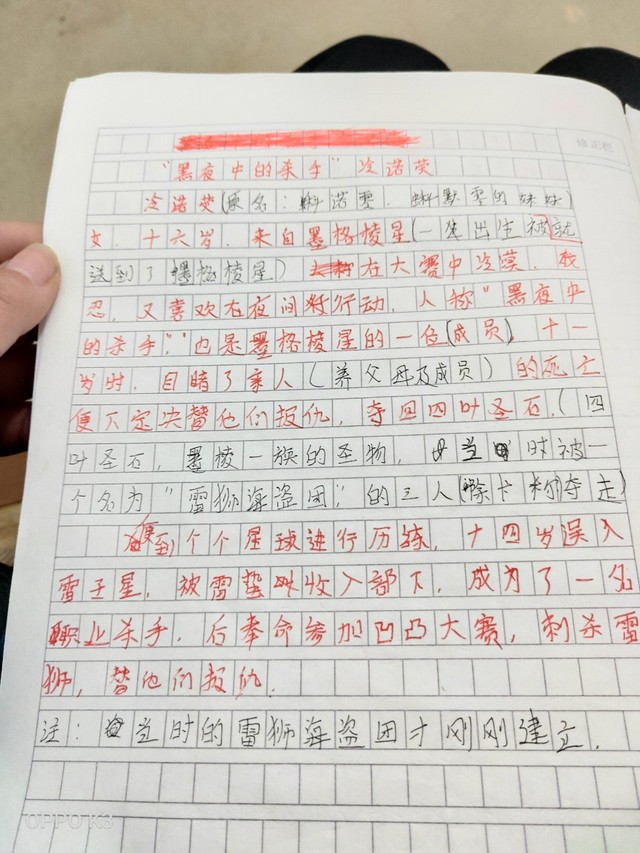 修正栏
"黑夜中的杀手"冷诺荧
冷诺荧(原名:蚪诺雯.蚪默雯的妹妹)
女.十六岁.来自墨格棱星(一生出生被就
送到了墨格棱星)在大赛中冷漠.我
忍.又喜欢在夜间行动.人称"黑夜中
的杀手."也是墨格棱星的一位(成员)十一
岁时.目睹了亲人(养父母及成员)的死亡
便下定决替他们报仇.夺回四叶圣石.(四
叶圣石,墨棱一族的圣物,当时被一
个名为"雷狮海盗团"的三人(除卡称夺走)
便到个个星球进行历练.十四岁误入
雷王星.被雷蛰收入部下.成为了一名
职业杀手.后奉命参加凹凸大赛,刺杀雷
狮,替他们报仇.
注:当时的雷狮海盗团才刚刚建立.
OPPO K3